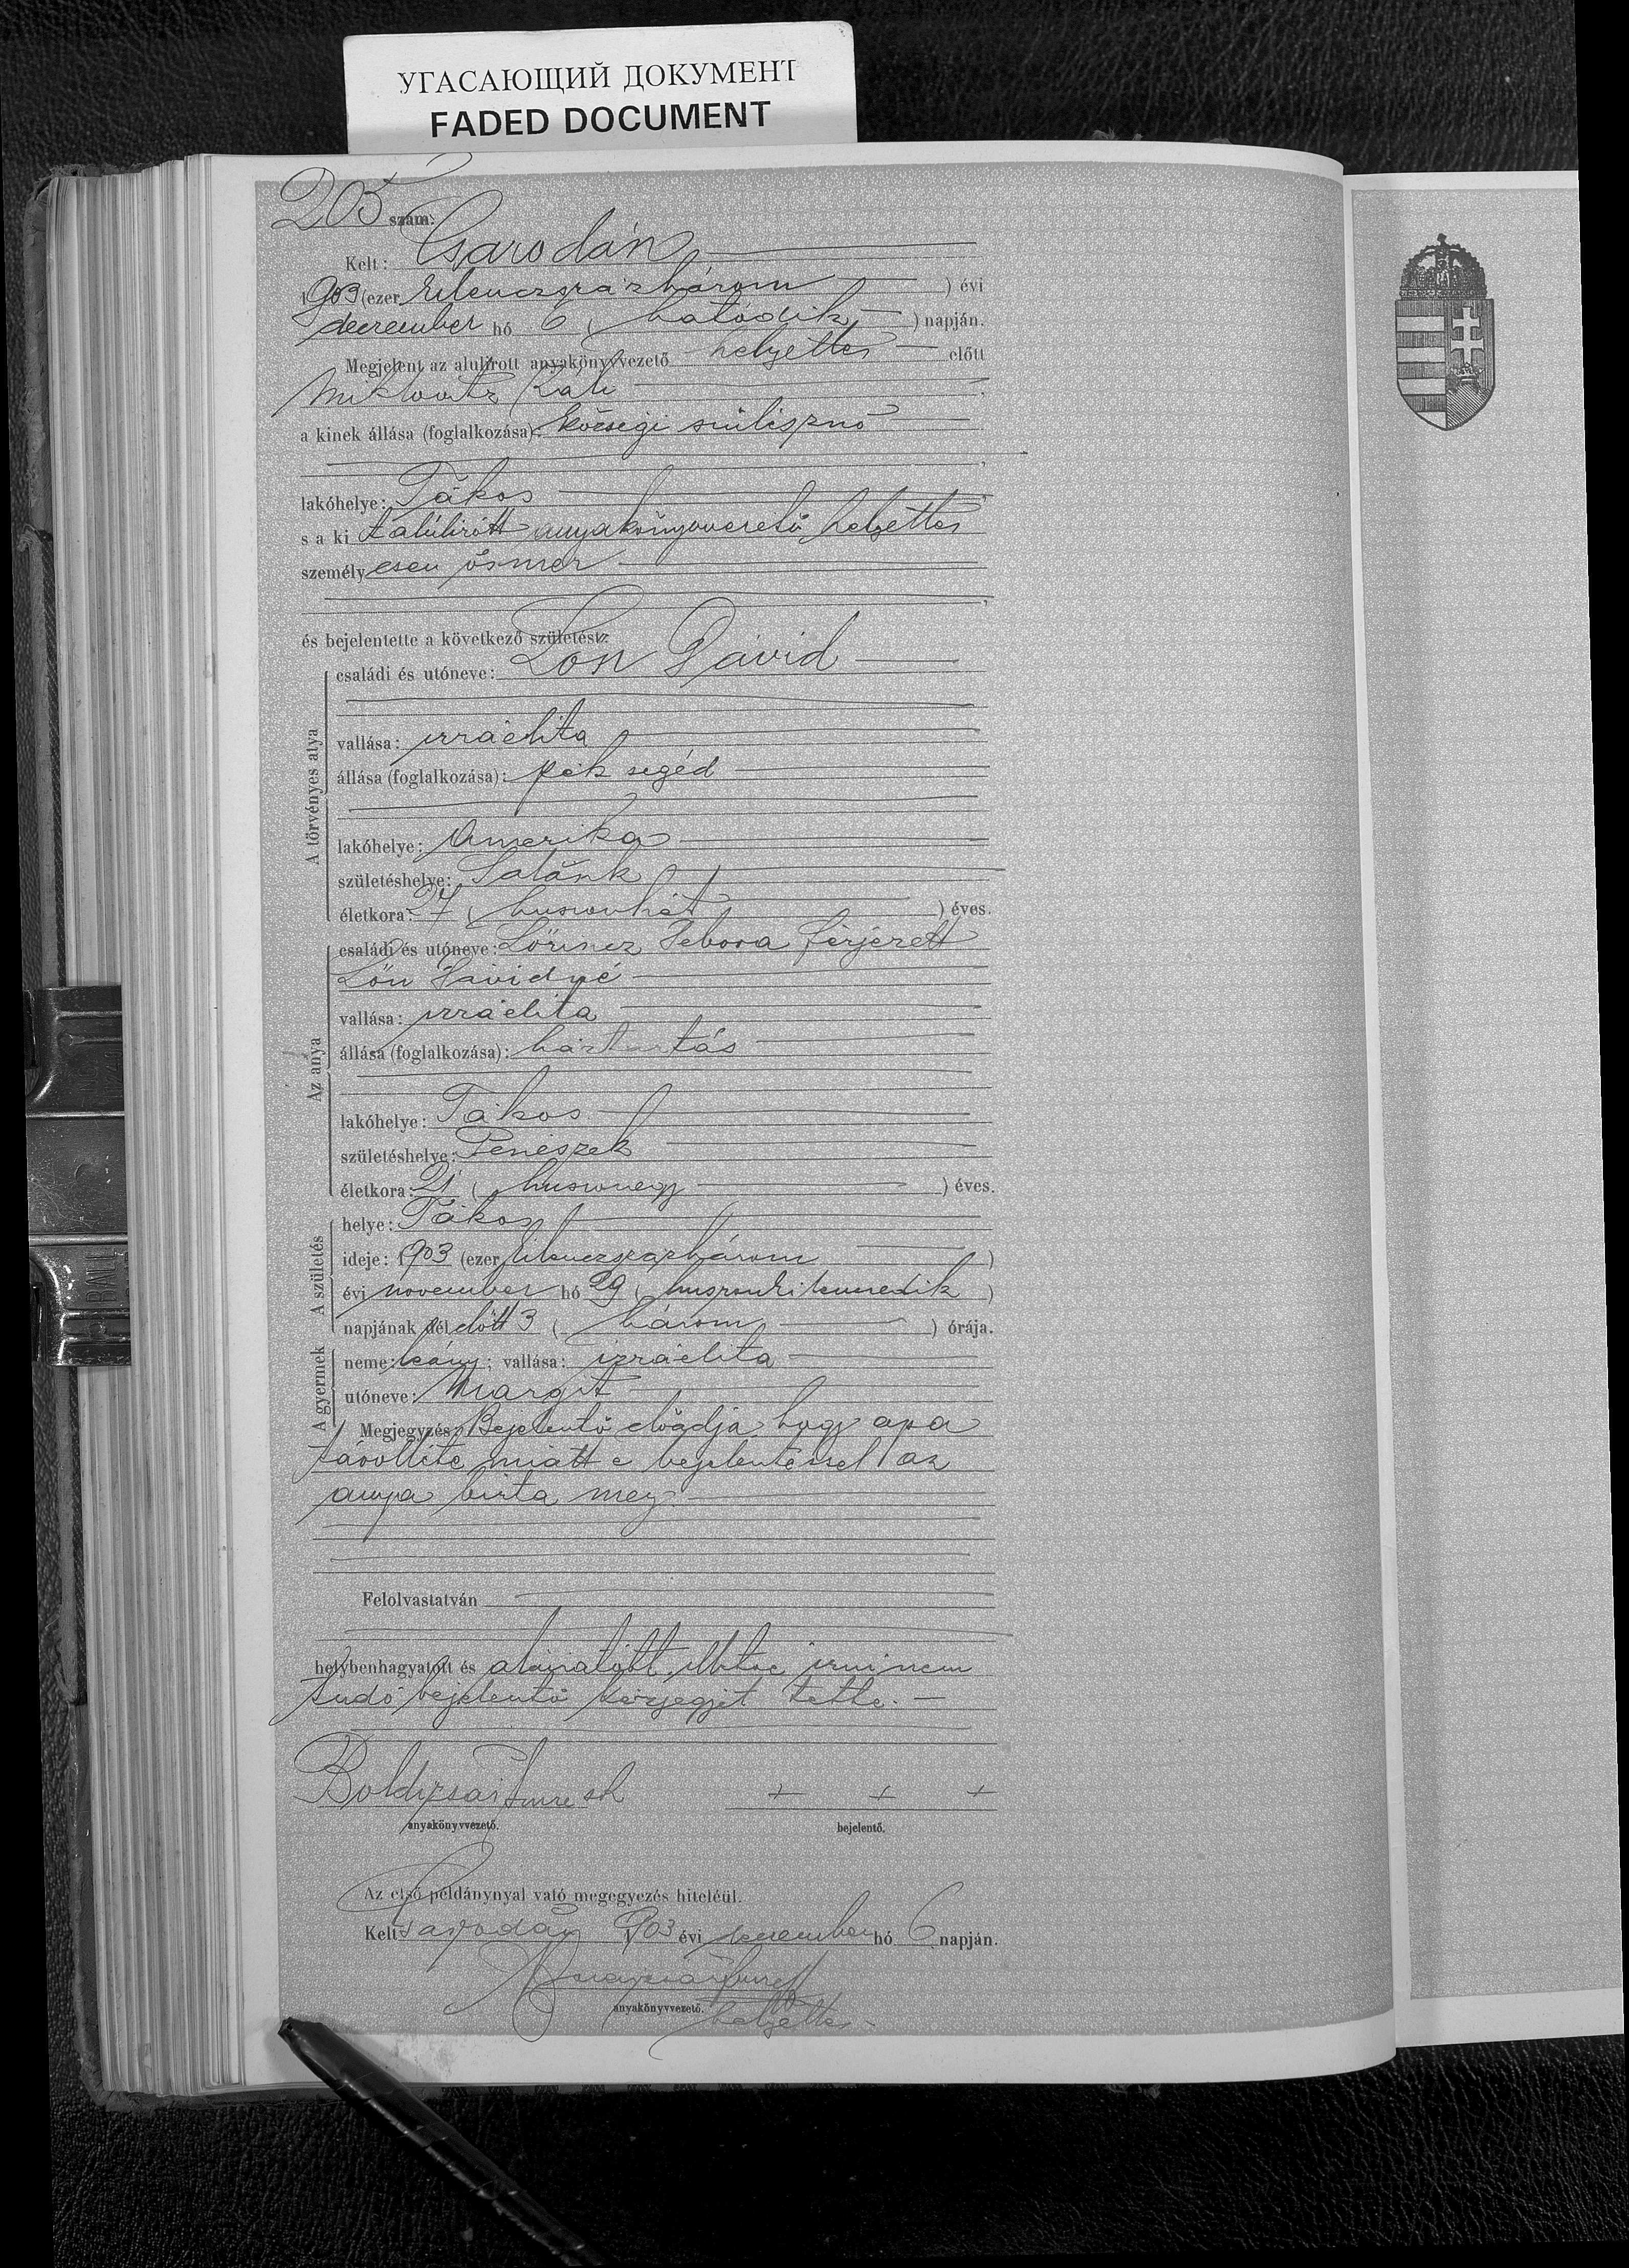 УГАСАЮЩИЙ ДОКУМЕНТ
FADED DOCUMENT
203 szám.
Kelt: Csarodán
1903 (ezer kilenczszázhárom ) évi
deczember hó 6 ( hatodik ) napján.
Megjelent az alulírott anyakönyvvezető helyettes előtt
Kati
a kinek állása (foglalkozása): községi szülésznő
lakóhelye: Tákos
s a ki alúlirótt anyakönyvvezető helyettes
személyesen ösmer
és bejelentette a következő születést:
A törvényes atya
családi és utóneve: Lön Dávid
vallása: izráelita
állása (foglalkozása): pék segéd
lakóhelye: Amerika
születéshelye: Salánk
életkora: 27 ( huszonhét ) éves.
Az anya
családi és utóneve: Lörincz Debora férjezett
Lön Dávidné
vallása: izráelita
állása (foglalkozása): háztartás
lakóhelye: Tákos
születéshelye: Penészek
életkora: 21 ( huszonegy ) éves.
A születés
helye: Tákos
ideje: 1903 (ezer kilenczszázhárom )
évi november hó 29 ( huszonkilenczedik )
napjának dél előtt 3 ( három ) órája.
A gyermek
neme: leány; vallása: izráelita
utóneve: Margit
Megjegyzés: Bejelentő előadja, hogy apa
távolléte miatt e bejelentéssel az
anya bizta meg.
Felolvastatván
helybenhagyatott és aláiratott. Illetve irni nem
tudó bejelentő kézjegyét tette.
Imre sk
+ + +
anyakönyvvezető.
bejelentő.
Az első példánynyal való megegyezés hiteléül.
Kelt Csarodán 1903 évi deczember hó 6 napján.
anyakönyvvezető.
helyettes